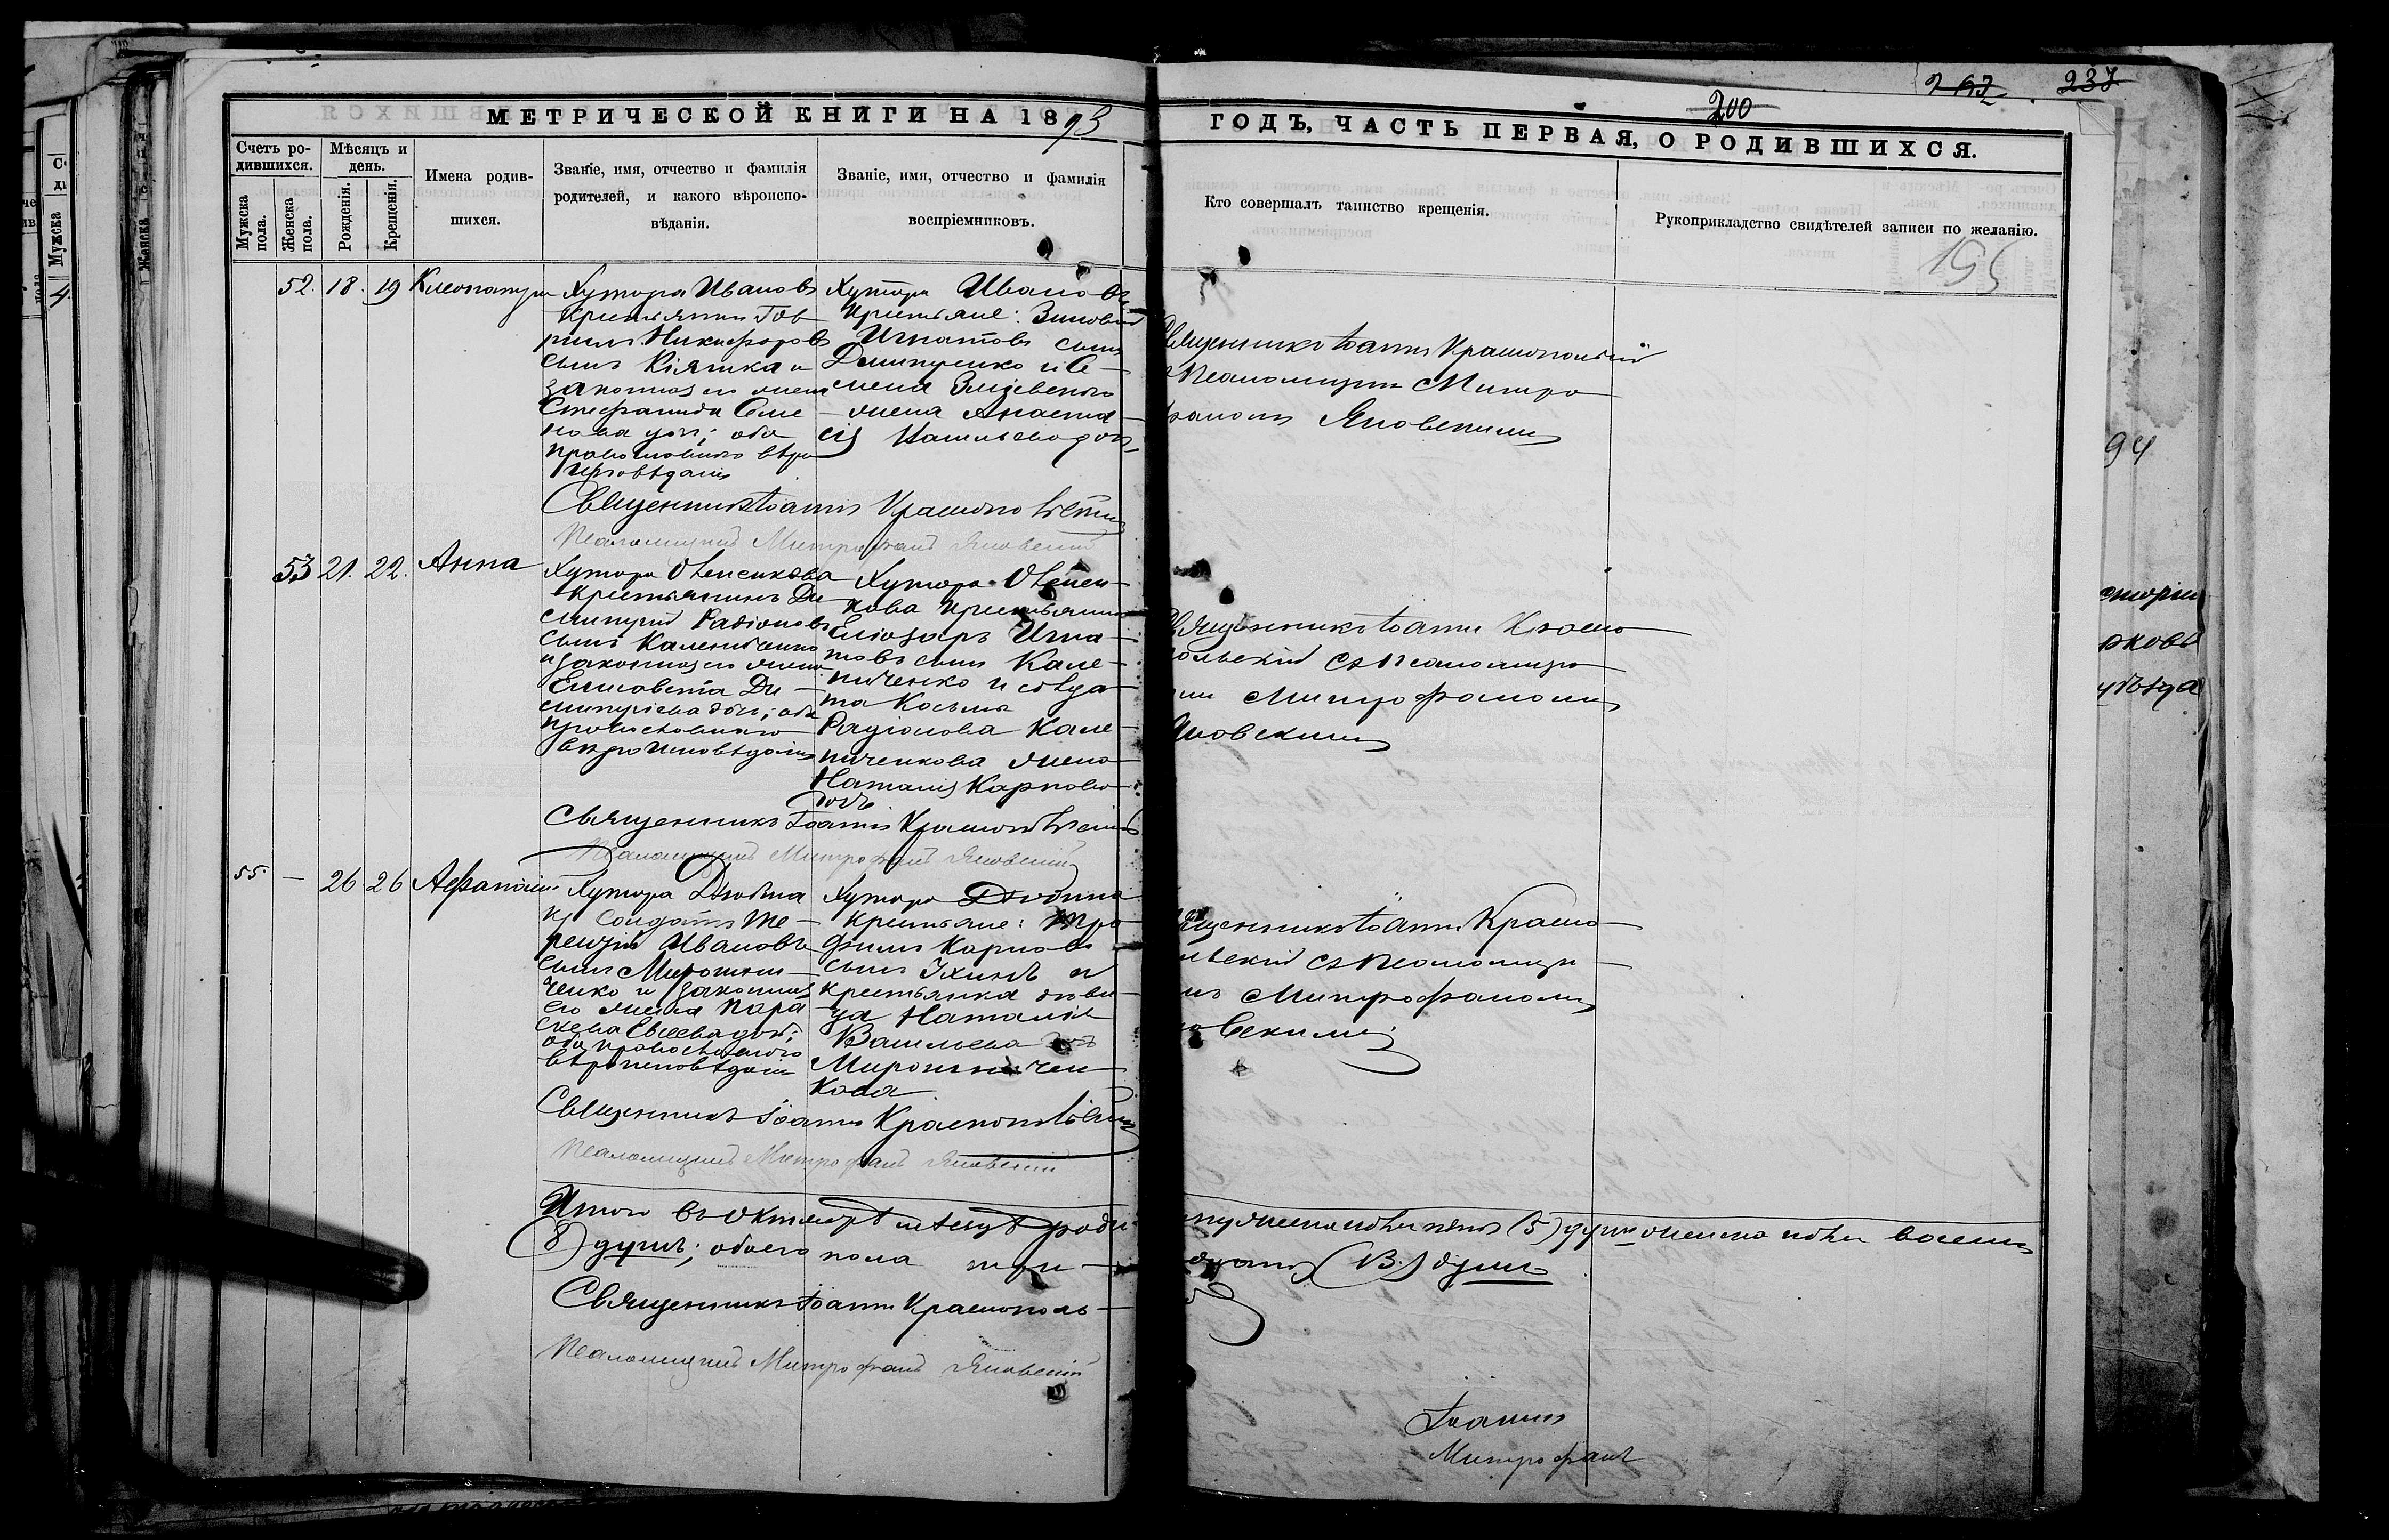 МЕТРИЧЕСКОЙ КНИГИ НА 1893
ГОДЪ, ЧАСТЬ ПЕРВАЯ, О РОДИВШИХСЯ.
200
237
195
Счетъ ро-
дившихся.
Мужска
пола.
Женска
пола.
Мѣсяцъ и
день.
Рожденія.
Крещенія.
Имена родив-
шихся.
Званіе, имя, отчество и фамилія
родителей, и какого вѣроиспо-
вѣданія.
Званіе, имя, отчество и фамилія
воспріемниковъ.
Кто совершалъ таинство крещенія.
Рукоприкладство свидѣтелей записи по желанію.
52. 18. 19 Клеопатра
Хутора Иванов
крестьянин Гав
риил Никифоров
сынъ Кіяшка и
законная его жена
Стефанида Семе
нова доч; оба
православнаго вѣро
исповѣданія
Хутора Иванов
крестьяне: Зиновій
Игнатовъ сынъ
Дмитренко и Се
мена
жена Анаста
сія Васильева доч
Священникъ Іоаннъ Краснопольскій
съ Псаломщикомъ Митро
фаномъ Яновскимъ
Священникъ Іоаннъ Краснопольскій
Псаломщикъ Митрофанъ Яновскій
53 21. 22. Анна
Хутора Овсенкова
крестьянинъ Ди
митрій Радіоновъ
сынъ Калениченко
и законная его жена
Елисавета Ди
митріева доч; оба
православнаго
вѣроисповѣданія
Хутора Овсен
кова крестьянинъ
Еліозаръ Игна
товъ сынъ Кале
ниченко и солда
та Косьмы
Радіонова Кале
ниченкова жена
Наталія Карпова
дочь
Священникъ Іоаннъ Красно
польскій съ Псаломщи
комъ Митрофаномъ
Яновскимъ
Священникъ Іоаннъ Краснопольскій
Псаломщикъ Митрофанъ Яновскій
55. — 26 26 Афанасій
Хутора Дзюбина
Солдатъ Те
рентій Ивановъ
сынъ Мирошни
ченко и законная
его жена Пара
скева Евсеева доч;
оба православнаго
вѣроисповѣданія
Хутора Дзюбина
крестьяне: Тро
фимъ Карповъ
сынъ и
крестьянка дѣви
ца Наталія
Васильева
Мирошничен
кова
Священникъ Іоаннъ Красно
польскій съ Псаломщи
комъ Митрофаномъ
Яновскимъ
Священникъ Іоаннъ Краснопольскій
Псаломщикъ Митрофанъ Яновскій
Итого въ Октябрѣ мѣсяцѣ роди
мужеска пола пять (5) душъ женска пола восемь
(8) душъ; обоего пола три
надцать (13) душъ
Священникъ Іоаннъ Краснополь
Псаломщикъ Митрофанъ Яновскій
Іоаннъ
Митрофанъ
94